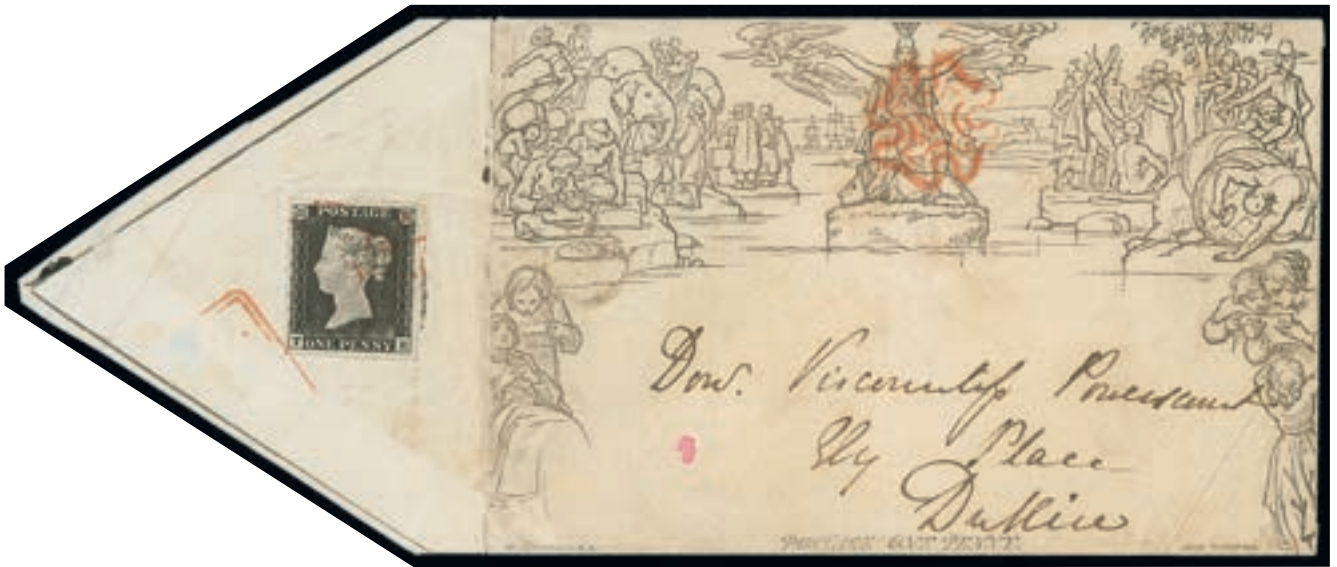 POSTAGE
ONE PENNY
Dow. Viscountess Powerscourt
Ely Place
Dublin
POSTAGE ONE PENNY